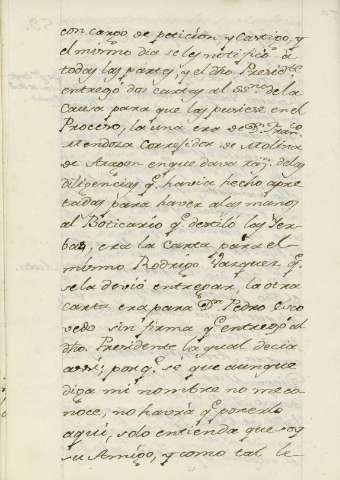 con cargo de peticion, y Castigo, y
el mismo dia se les notificó à
todas las partes, y el dho Presidte
entregó dos cartas al SSno de la
Causa para que las pusiese en el
Proceso, la una era de Dn Franco
Mendoza Corregidor de Molina
de Aragon en que dava razn de las
diligencias q. havia hecho apre
tadas para haver a las manos
al Boticario qe destiló las Yer-
bas, era la Carta para el
mismo Rodrigo Vazquez qe
se la devió entregar, la otra
carta era para Dn Pedro Esco
vedo sin firma qe entregó al
dho. Presidente la qual decia
assi; porqe se que aunque
diga mi nombre no me co-
noce, no havrá qe ponerlo
aqui, solo entienda que soy
su Amigo, y como tal le-